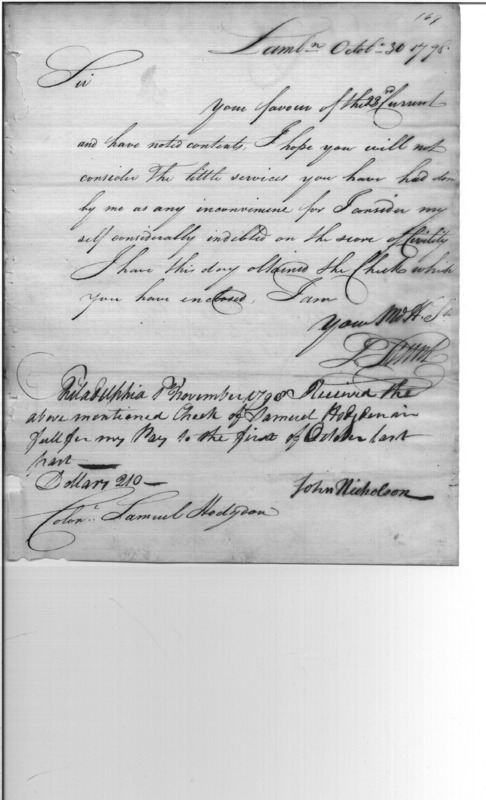 Lambn. Octobr. 30 1798.
Sir
your favour of the 23d Current
and have noted contents, I hope you will not
consider the little services you have had done
by me as any inconvenience for I consider my
self considerably indebted on the score of Civility
I have this day obtained the Check which
you have enclosed, I am
your Mo. H. St.
Philadelphia 8th November 1798 Received the
above mentioned Check of Samuel Hodgdon in
full for my Pay to the first of October last
past —
Dollars 210 —
John Nicholson
Colon. Samuel Hodgdon